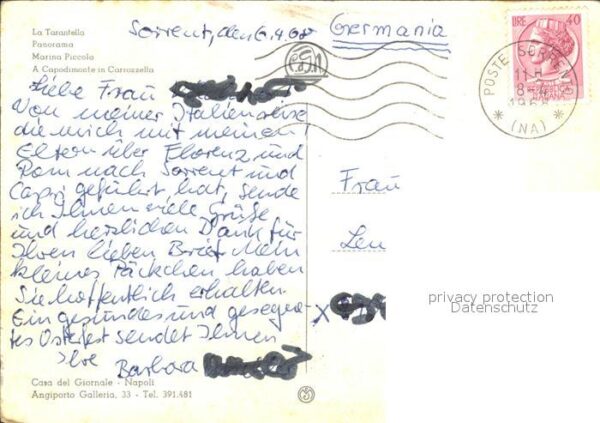 La Tarantella
Panorama
Marina Piccola
A Capodimonte in Carrozzella
Sorrent, den 6.4.68
Germania
LIRE 40
POSTE SORRENTO
11 H
(NA)
Liebe Frau
Von meiner Italienreise
die mich mit meinen
Eltern über Florenz und
Rom nach Sorrent und
Capri geführt hat, sende
ich Ihnen viele Grüße
und herzlichen Dank für
Ihren lieben Brief. Mein
kleines Päckchen haben
Sie hoffentlich erhalten.
Ein gesundes und gesegne-
tes Osterfest sendet Ihnen
Ihre
Barbara
Frau
Len
x
privacy protection
Datenschutz
Casa del Giornale - Napoli
Angiporto Galleria, 33 - Tel. 391.481